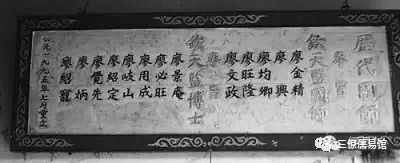 歷代國師
奉旨
欽天監國師
廖金精
廖興
廖均卿
廖旺隆
廖文政
欽天監博士
廖景庵
廖必旺
廖用成
廖岐山
廖紹定
廖覺先
廖炳
廖紹寵
公元一九九五年七月重立
三僚儒易馆